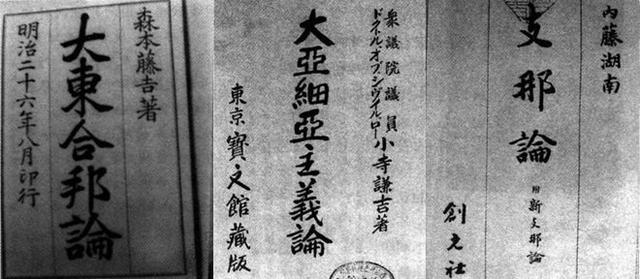 森本藤吉著
大東合邦論
明治二十六年八月印行
衆議院議員
ドクトルオブシヴィルロー
小寺謙吉著
大亞細亞主義論
東京寶文館藏版
內藤湖南
支那論
附新支那論
創元社